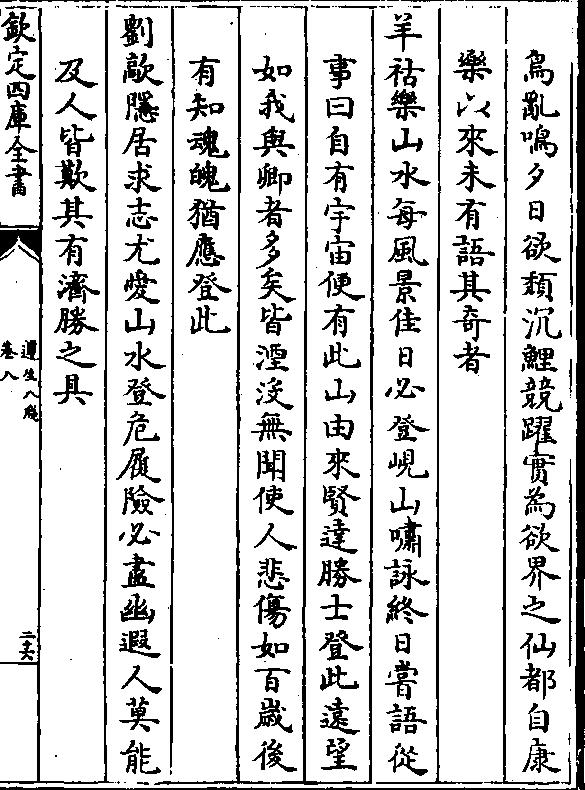 鳥亂鳴夕日欲頽沉鯉競躍實為欲界之仙都自康
樂以來未有語其奇者
羊祜樂山水每風景佳日必登峴山嘯詠終日嘗語從
事曰自有宇宙便有此山由來賢達勝士登此遠望
如我與卿者多矣皆湮没無聞使人悲傷如百歲後
有知魂魄猶應登此
劉歊隱居求志尤愛山水登危履險必盡幽遐人莫能
及人皆歎其有濟勝之具
欽定四庫全書
遵生八牋
卷八
二十六